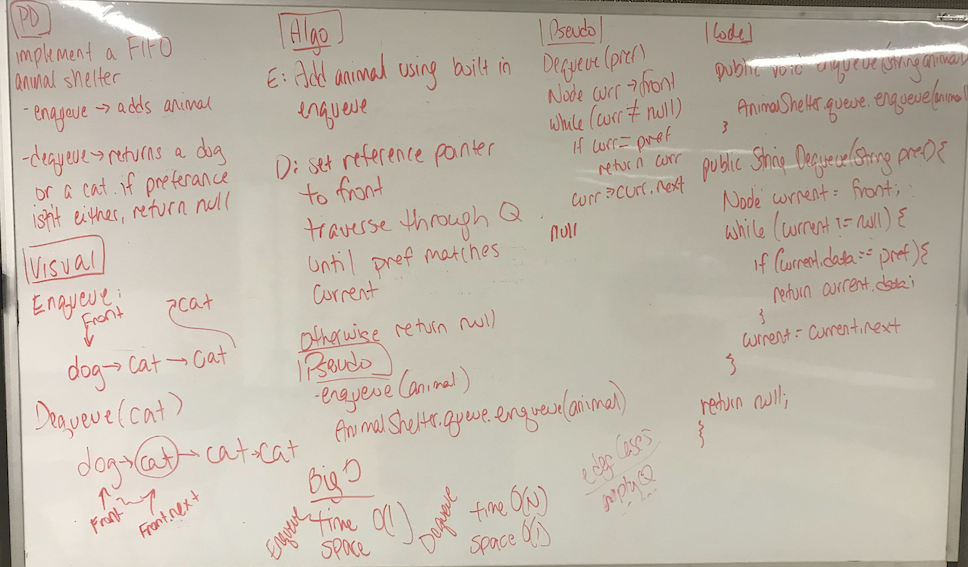 PD
implement a FIFO
animal shelter
-enqueue → adds animal
-dequeue → returns a dog
or a cat. if preferance
isn't either, return null
Visual
Enqueue:
Front
cat
dog → cat → cat
Dequeue(cat)
dog → cat → cat → cat
Front
Front.next
Algo
E: Add animal using built in
enqueue
D: set reference pointer
to front
traverse through Q
until pref matches
current
Otherwise return null
Pseudo
-enqueue(animal)
AnimalShelter.queue.enqueue(animal)
Big O
Enqueue
time O(1)
space
Dequeue
time O(N)
space O(1)
Pseudo
Dequeue(pref)
Node curr → front
while (curr ≠ null)
if curr = pref
return curr
curr → curr.next
null
edge cases
empty Q
Code
public void enqueue(String animal
AnimalShelter.queue.enqueue(animal
}
public String Dequeue(String pref){
Node current = front;
while (current != null) {
if (current.data == pref){
return current.data;
}
current = current.next
}
return null;
}